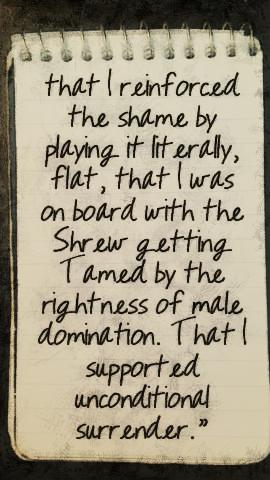 that I reinforced
the shame by
playing it literally,
flat, that I was
on board with the
Shrew getting
Tamed by the
rightness of male
domination. That I
supported
unconditional
surrender."